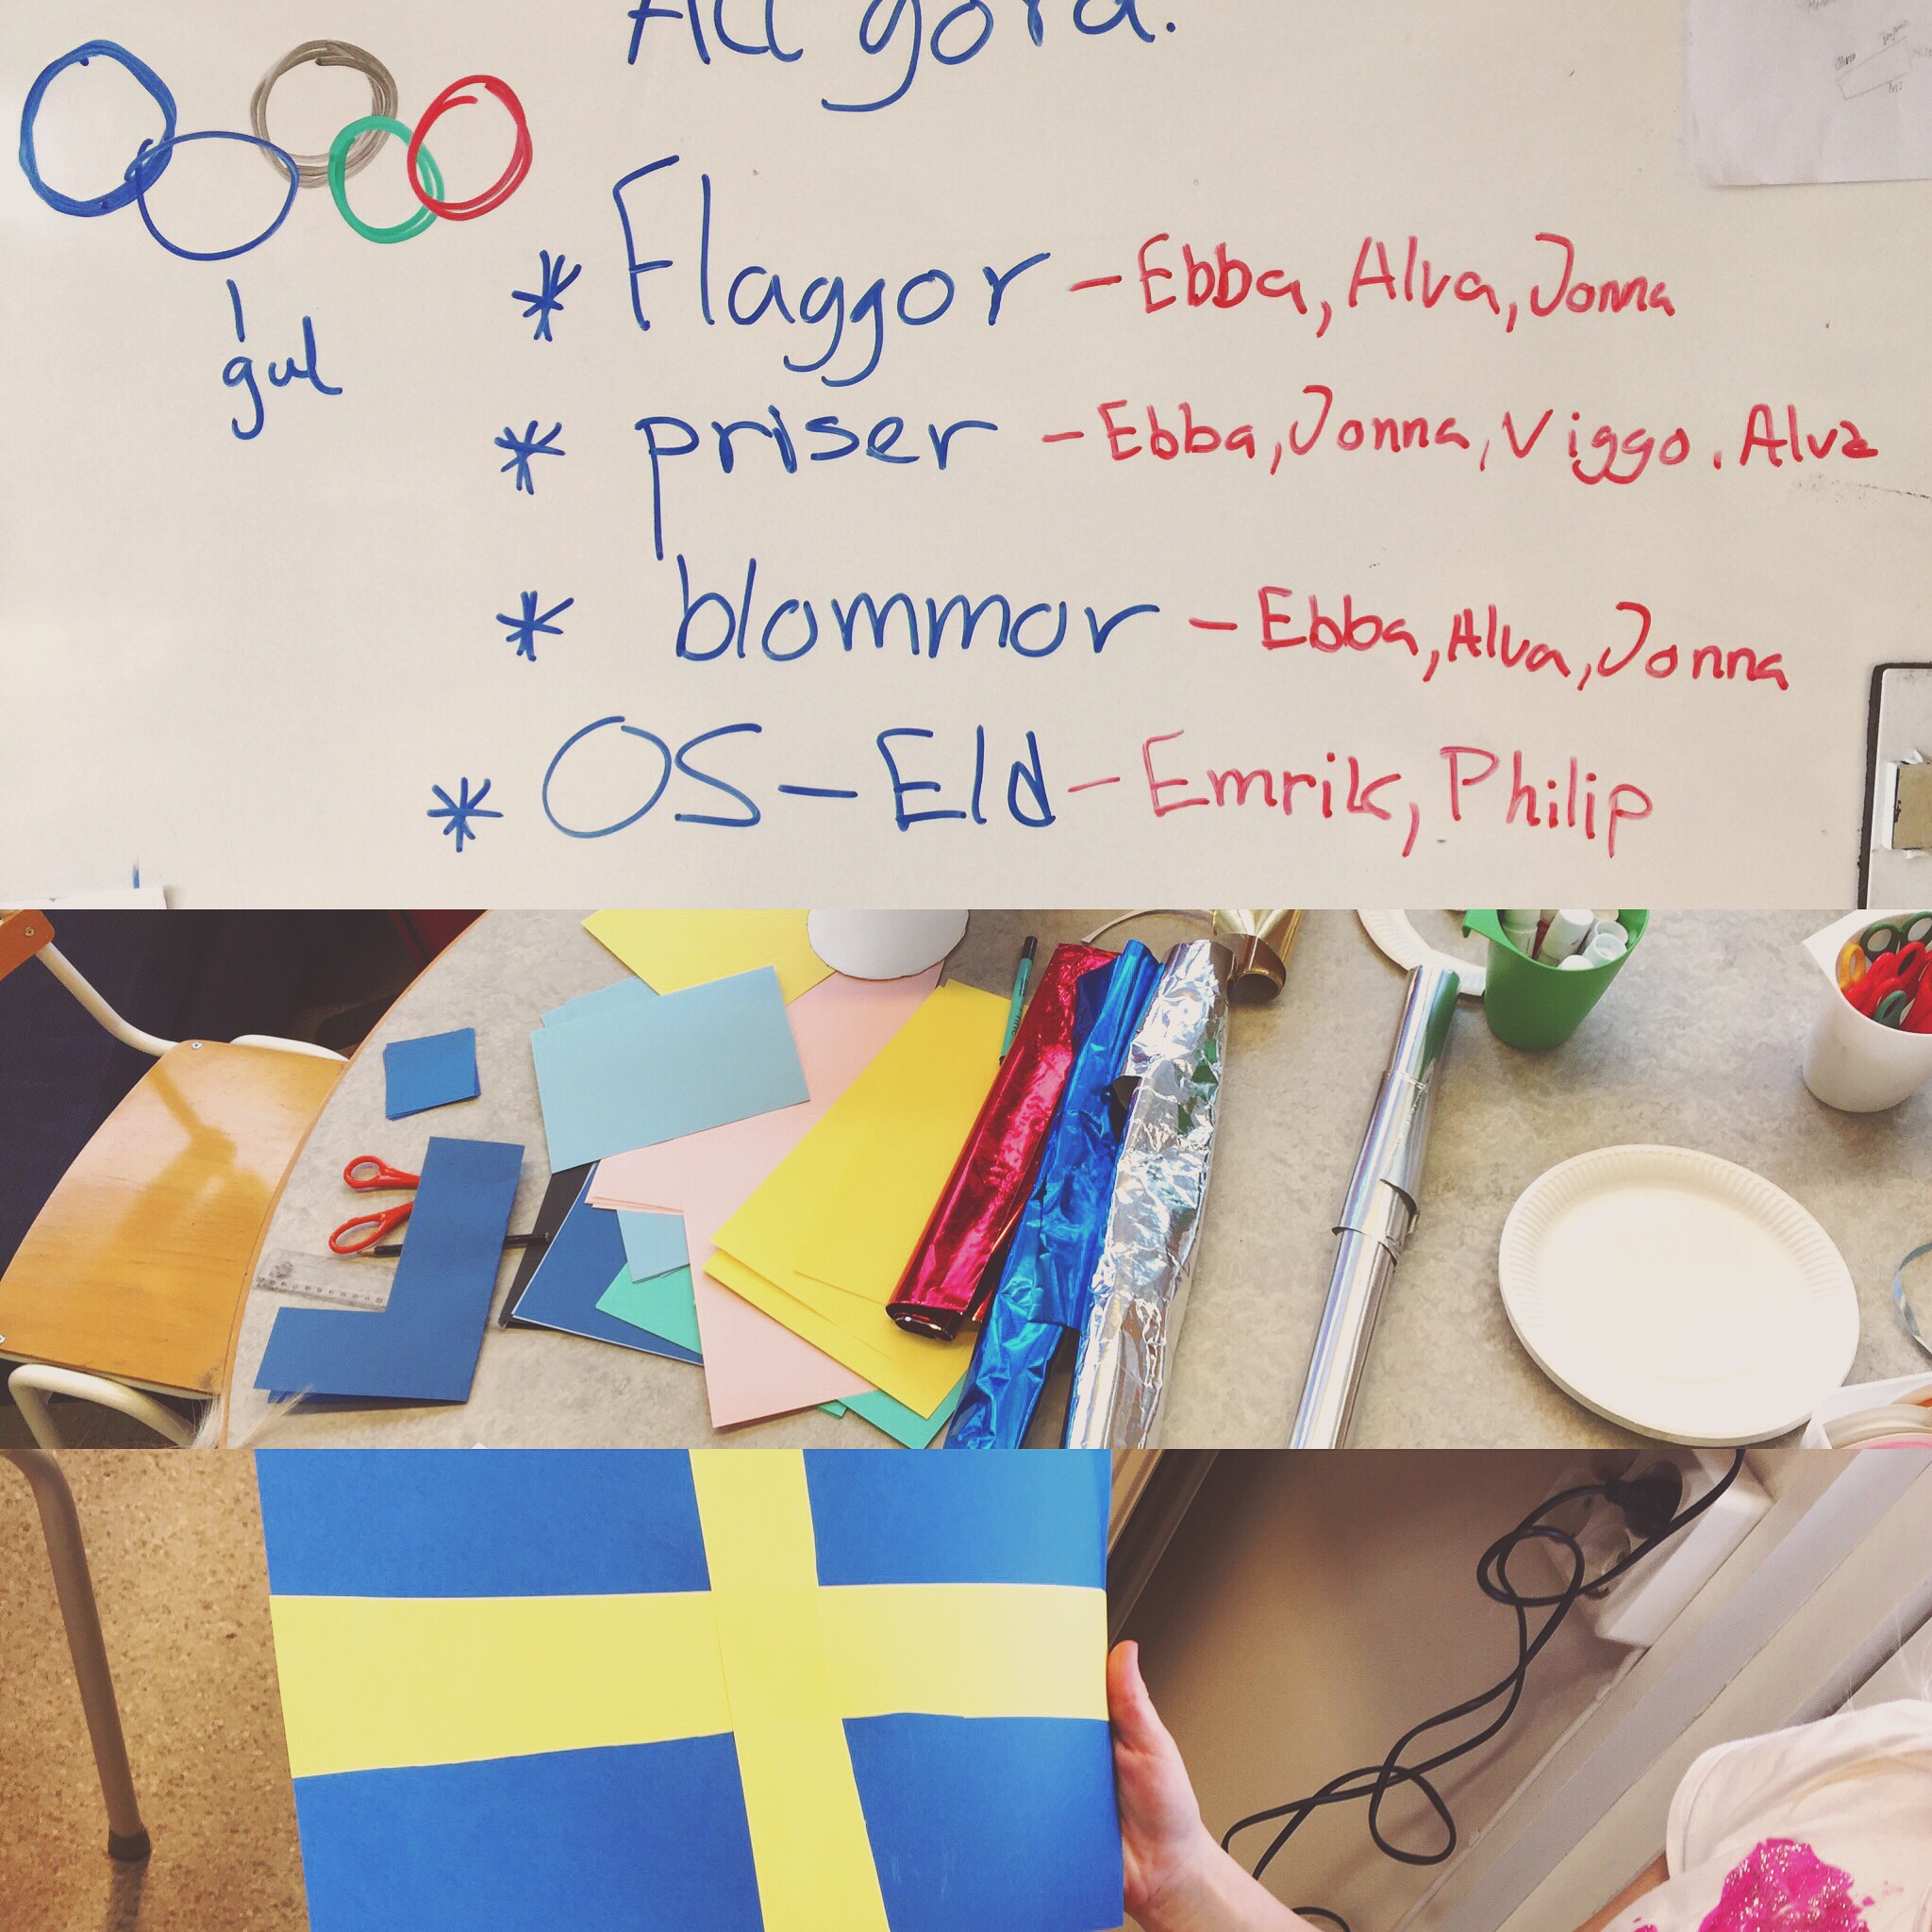 Att göra:
gul
* Flaggor - Ebba, Alva, Jonna
* priser - Ebba, Jonna, Viggo. Alva
* blommor - Ebba, Alva, Jonna
* OS - Eld - Emrik, Philip